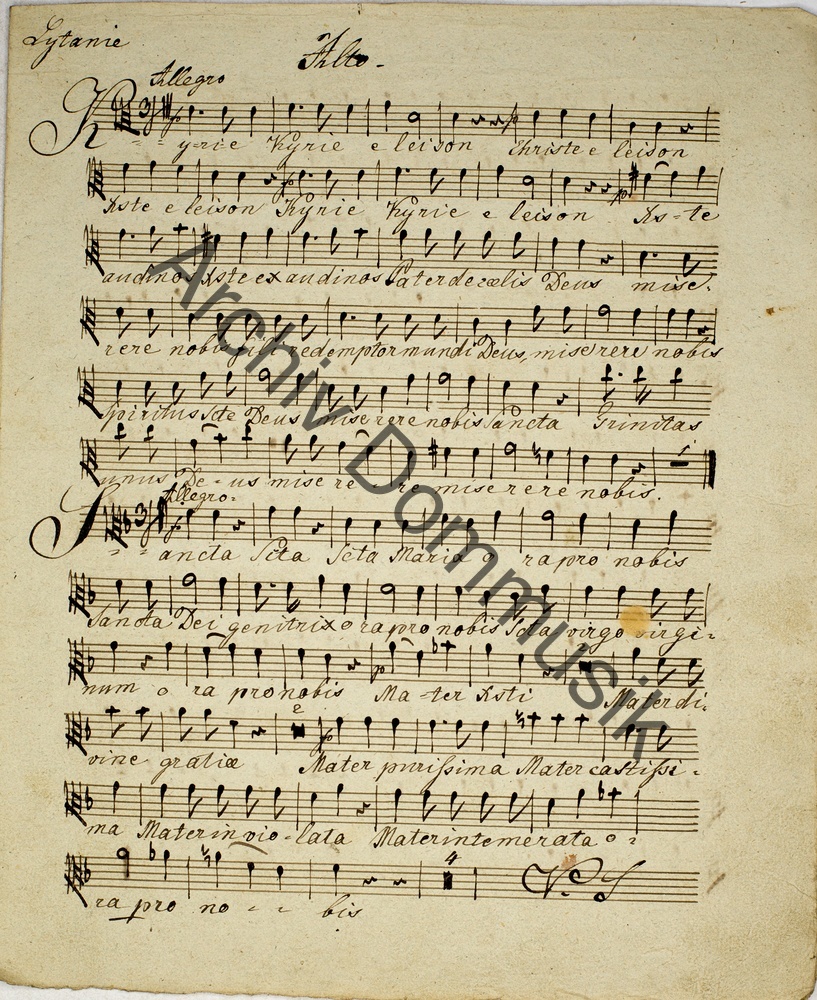 Lytanie
Alto.
Allegro
Kyrie Kyrie eleison Christe eleison
Xste eleison Kyrie Kyrie eleison Xs=te
audinos Xste exaudinos Pater de coelis Deus mise=
rere nobis fili redemptor mundi Deus, miserere nobis
spiritus Scte Deus miserere nobis Sancta Trinitas
unus De-us misere - re miserere nobis.
Allegro:
Sancta Scta Scta Maria o ra pro nobis
Sancta Dei genitrix ora pro nobis Scta virgo virgi=
num o ra pro nobis Ma-ter Xsti Mater di=
2
vine gratiæ Mater purissima Mater castissi=
ma Mater inviolata Mater intemerata o=
4
ra pro no - - bis
V. S
Archiv Dommusik